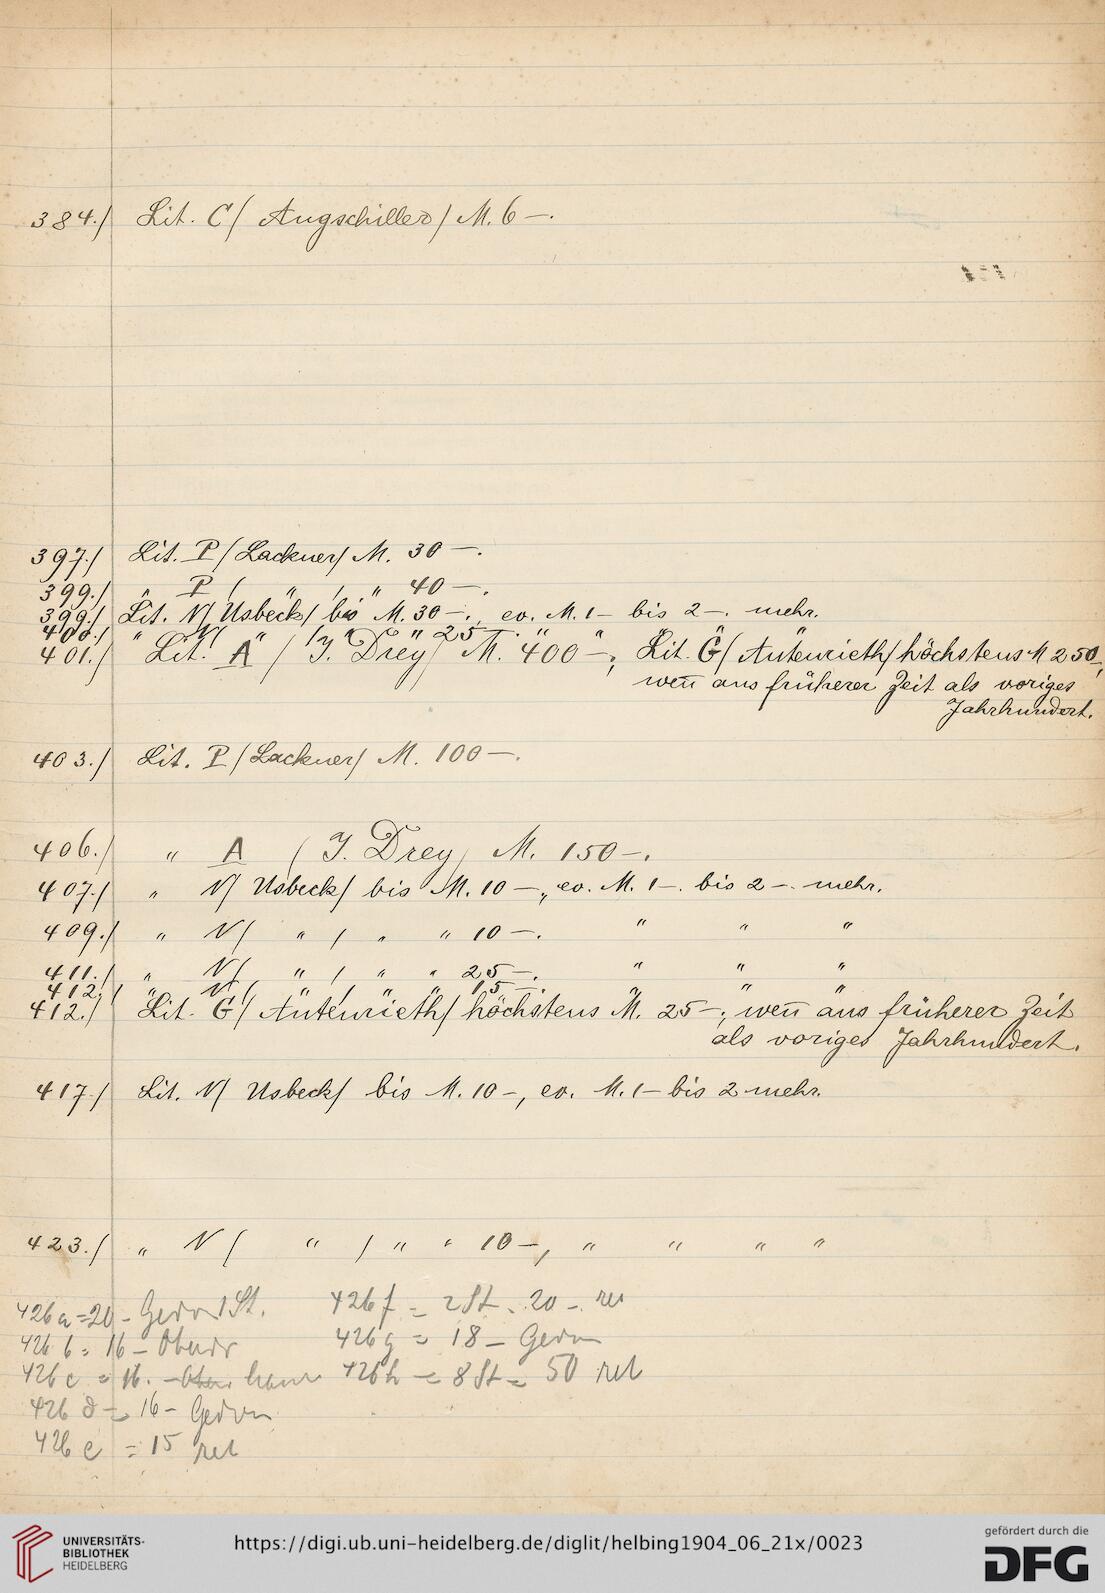 384./ Lit. C/ Augschiller/ M. 6 —.
397./ Lit. P/ Lackner/ M. 30 —.
399./ " P/ " / " 40 —.
399./ Lit. N/ Usbeck/ bis M. 30 —., ev. M. 1 — bis 2 —. mehr.
400./ " N/ " / " " 25 —. " " "
401./ Lit. A / J. Drey/ M. 400 —; Lit. G/ Autenrieth/ höchstens M 250,
wen̄ aus früherer Zeit als voriges
Jahrhundert.
403./ Lit. P/ Lackner/ M. 100 —.
406./ " A / J. Drey/ M. 150 —.
407./ " N/ Usbeck/ bis M. 10 —., ev. M. 1 —. bis 2 —. mehr.
409./ " N/ " / " " 10 —. " " "
411./ " N/ " / " " 25 —. " " "
412./ " N/ " / " " 15 —. " " "
412./ Lit. G/ Autenrieth/ höchstens M. 25 —; wen̄ aus früherer Zeit
als voriges Jahrhundert.
417./ Lit. N/ Usbeck/ bis M. 10 —, ev. M. 1 — bis 2 mehr.
423./ " N/ " / " " 10 —, " " " "
426a = 20 — 1 St.
426 b = 16 —
426 c = 16. —
426 d = 16 —
426 e = 15 ret
426 f = 2 St = 20 —. ret
426 g = 18 —
426 h = 8 St = 50 ret
UNIVERSITÄTS-
BIBLIOTHEK
HEIDELBERG
https://digi.ub.uni-heidelberg.de/diglit/helbing1904_06_21x/0023
gefördert durch die
DFG